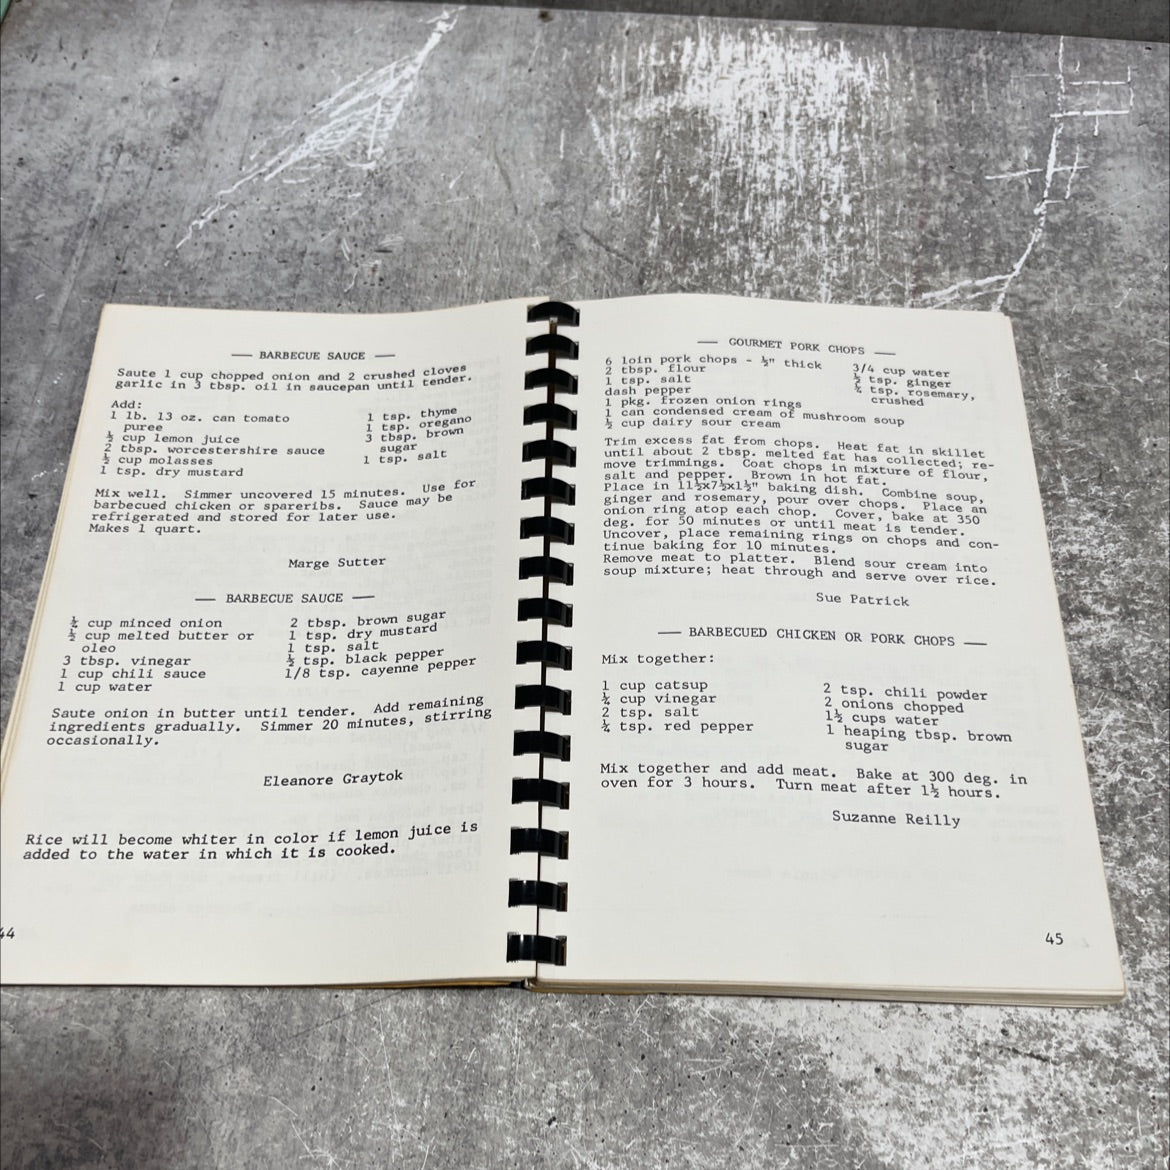 — BARBECUE SAUCE —
Saute 1 cup chopped onion and 2 crushed cloves
garlic in 3 tbsp. oil in saucepan until tender.
Add:
1 lb. 13 oz. can tomato
puree
½ cup lemon juice
2 tbsp. worcestershire sauce
½ cup molasses
1 tsp. dry mustard
1 tsp. thyme
1 tsp. oregano
3 tbsp. brown
sugar
1 tsp. salt
Mix well. Simmer uncovered 15 minutes. Use for
barbecued chicken or spareribs. Sauce may be
refrigerated and stored for later use.
Makes 1 quart.
Marge Sutter
— BARBECUE SAUCE —
¼ cup minced onion
½ cup melted butter or
oleo
3 tbsp. vinegar
1 cup chili sauce
1 cup water
2 tbsp. brown sugar
1 tsp. dry mustard
1 tsp. salt
½ tsp. black pepper
1/8 tsp. cayenne pepper
Saute onion in butter until tender. Add remaining
ingredients gradually. Simmer 20 minutes, stirring
occasionally.
Eleanore Graytok
Rice will become whiter in color if lemon juice is
added to the water in which it is cooked.
44
— GOURMET PORK CHOPS —
6 loin pork chops - ½" thick
2 tbsp. flour
1 tsp. salt
dash pepper
1 pkg. frozen onion rings
1 can condensed cream of mushroom soup
½ cup dairy sour cream
3/4 cup water
½ tsp. ginger
¼ tsp. rosemary,
crushed
Trim excess fat from chops. Heat fat in skillet
until about 2 tbsp. melted fat has collected; re-
move trimmings. Coat chops in mixture of flour,
salt and pepper. Brown in hot fat.
Place in 11½x7½x1½" baking dish. Combine soup,
ginger and rosemary, pour over chops. Place an
onion ring atop each chop. Cover, bake at 350
deg. for 50 minutes or until meat is tender.
Uncover, place remaining rings on chops and con-
tinue baking for 10 minutes.
Remove meat to platter. Blend sour cream into
soup mixture; heat through and serve over rice.
Sue Patrick
— BARBECUED CHICKEN OR PORK CHOPS —
Mix together:
1 cup catsup
¼ cup vinegar
2 tsp. salt
¼ tsp. red pepper
2 tsp. chili powder
2 onions chopped
1½ cups water
1 heaping tbsp. brown
sugar
Mix together and add meat. Bake at 300 deg. in
oven for 3 hours. Turn meat after 1½ hours.
Suzanne Reilly
45